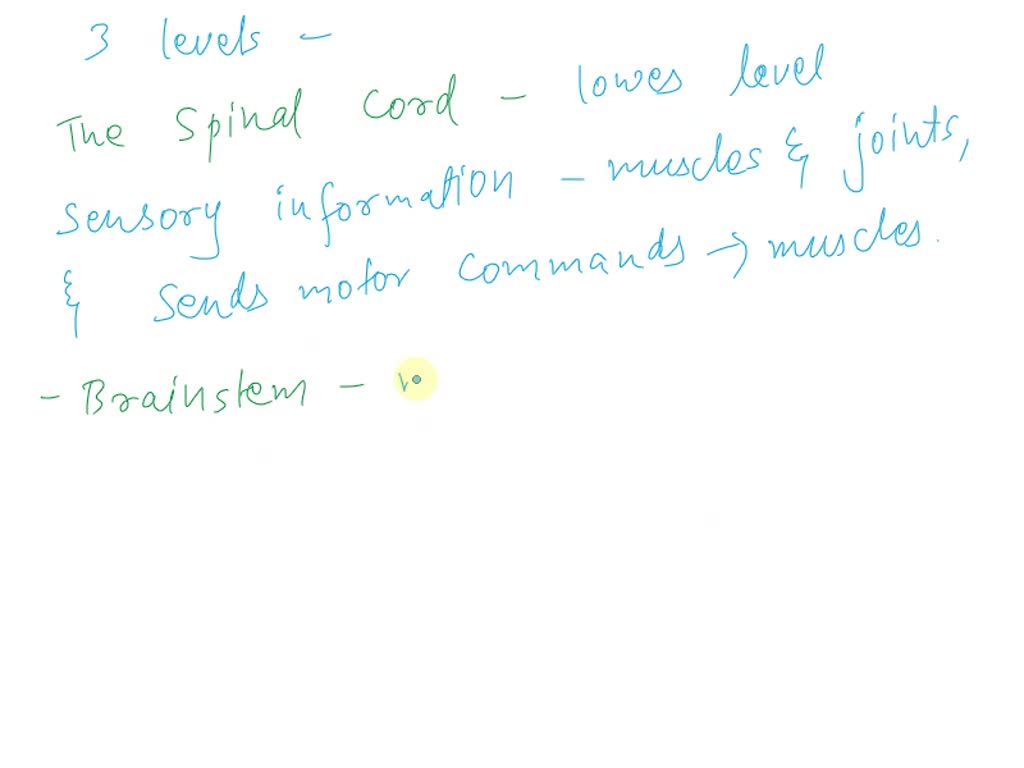 3 levels -
The Spinal Cord - lowes level
sensory information - muscles & joints,
& sends motor commands → muscles.
- Brainstem -